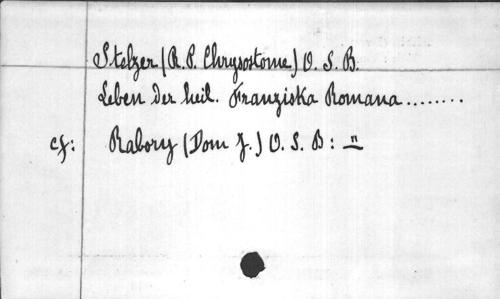 Stelzer (R. P. Chrysostome) O. S. B.
Leben der heil. Franziska Romana ........
cf: Rabory (Dom J.) O. S. B : "